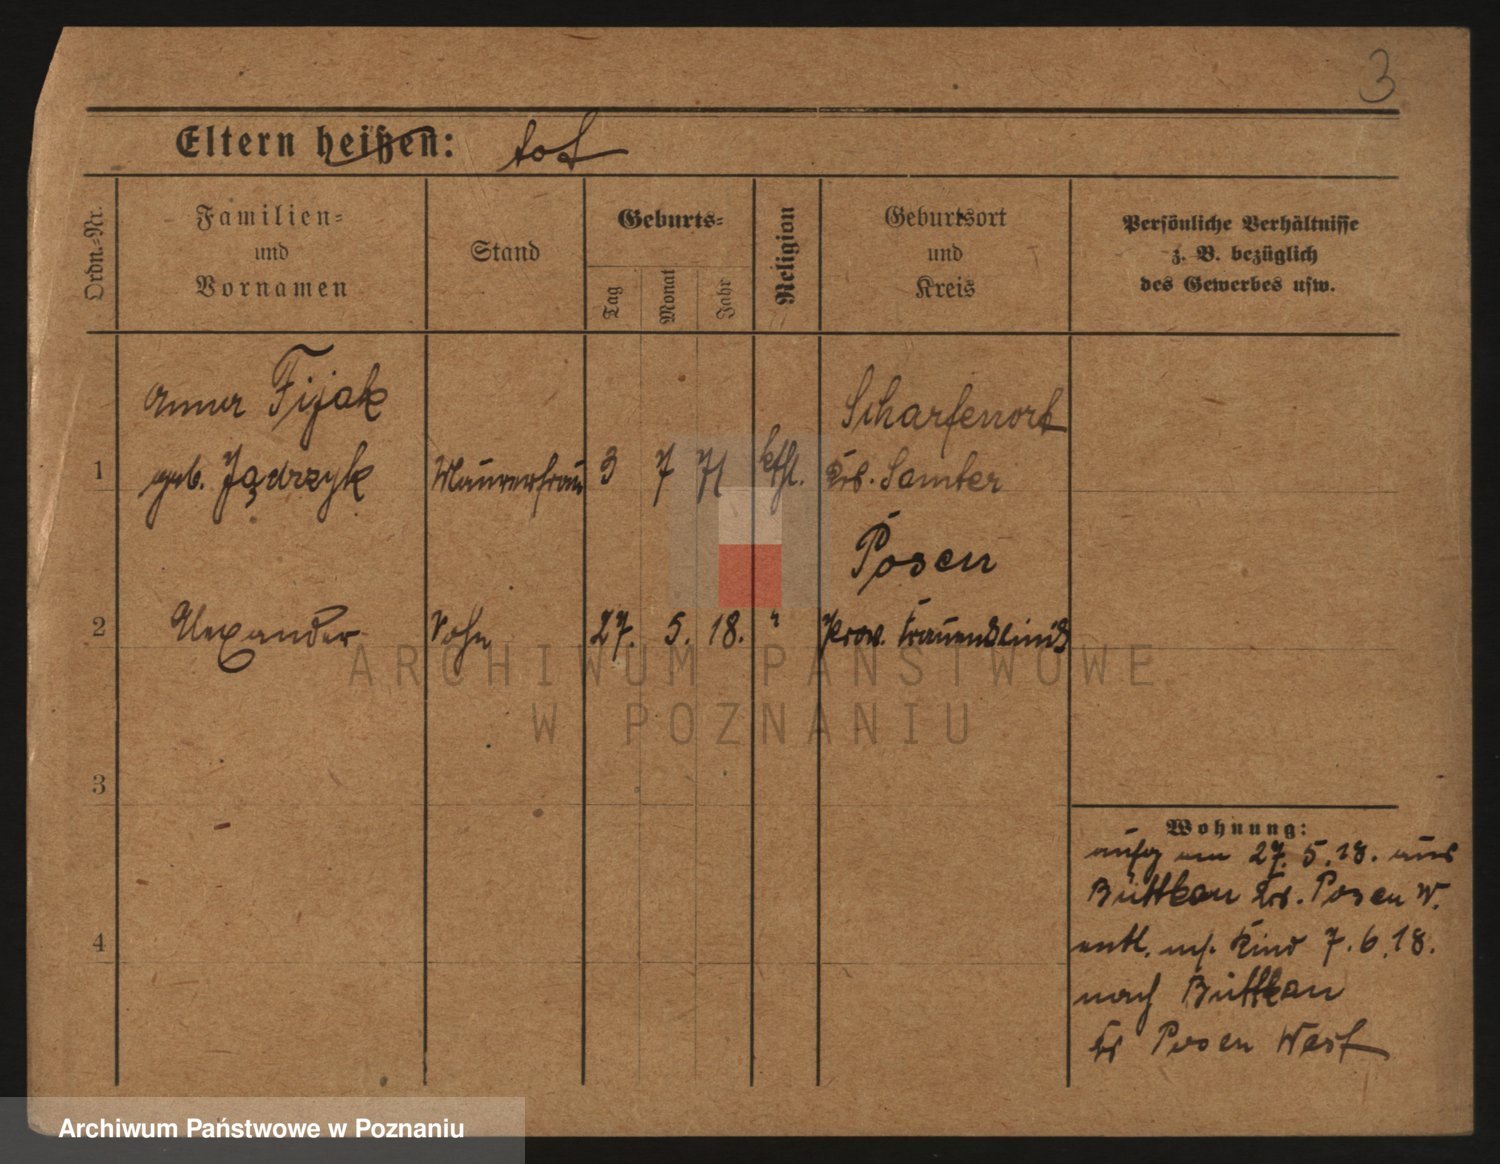 3
Eltern heißen: tot
Ordn.-Nr.
Familien-
und
Vornamen
Stand
Geburts-
Tag
Monat
Jahr
Religion
Geburtsort
und
Kreis
Persönliche Verhältnisse
z. B. bezüglich
des Gewerbes usw.
Anna Fijak
Scharfenort
1 geb. Jądrzyk Maurerfrau 3 7 71 kthl. Krs. Samter
Posen
2 Alexander Sohn 27. 5. 18. " Prov. Frauenklinik
ARCHIWUM PAŃSTWOWE
W POZNANIU
3
Wohnung:
aufg am 27.5.18. aus
Krs. Posen W.
4
entl. m. Kind 7.6.18.
nach
Kr Posen West
Archiwum Państwowe w Poznaniu